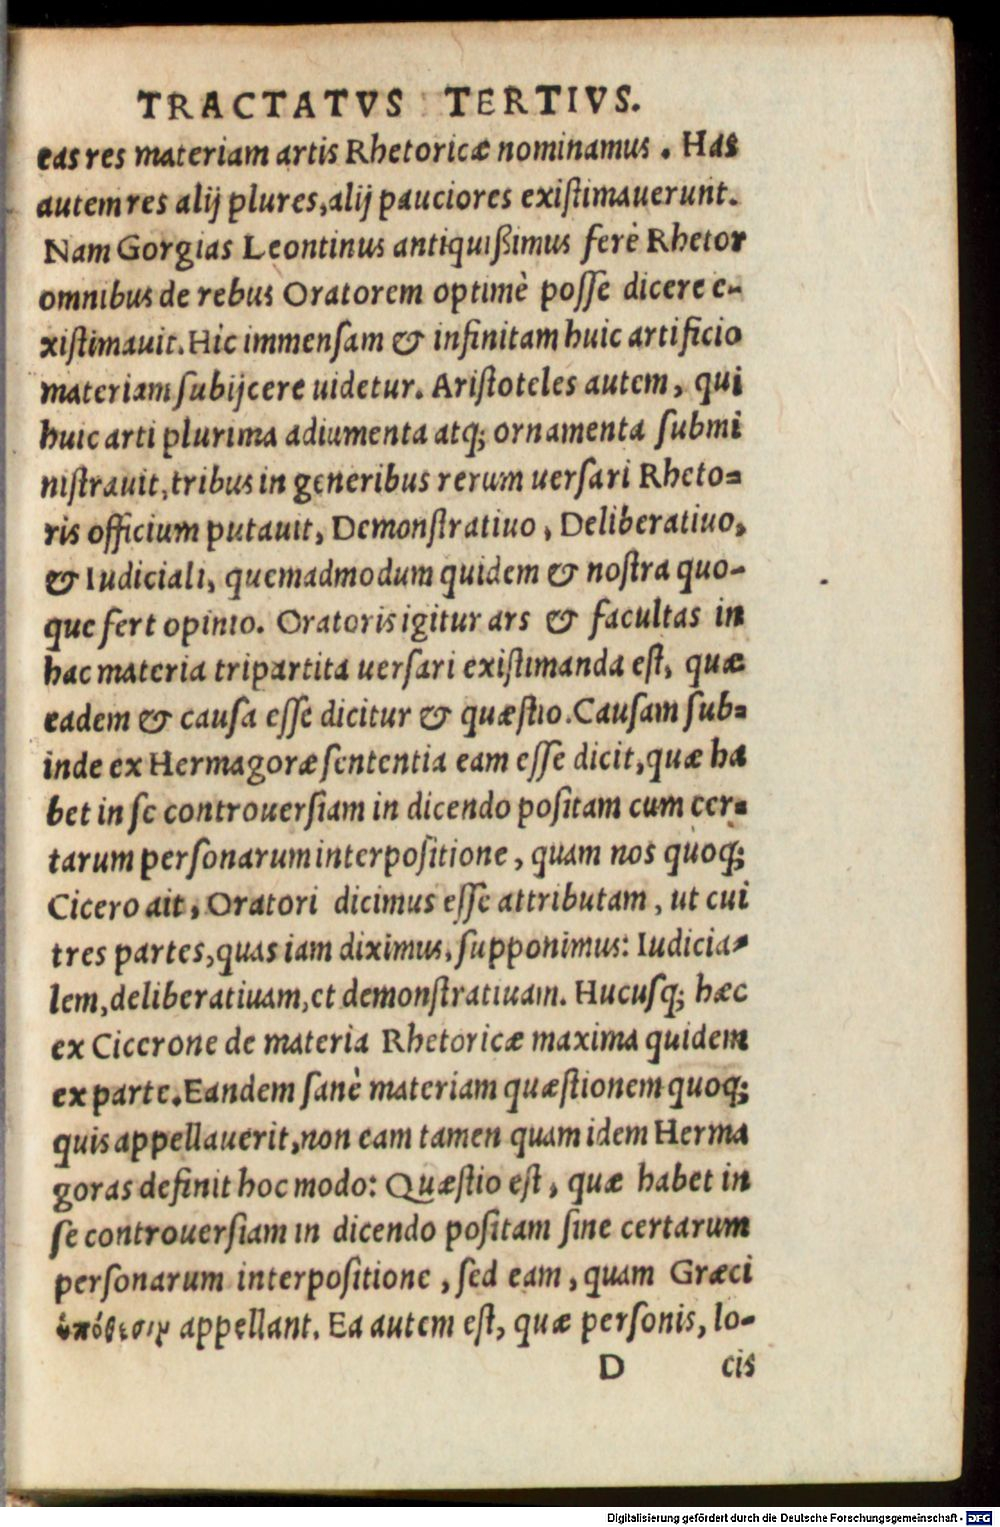 TRACTATVS TERTIVS.
eas res materiam artis Rhetoricæ nominamus. Has
autem res alij plures, alij pauciores existimauerunt.
Nam Gorgias Leontinus antiquißimus ferè Rhetor
omnibus de rebus Oratorem optimè posse dicere e-
xistimauit. Hic immensam & infinitam huic artificio
materiam subijcere uidetur. Aristoteles autem, qui
huic arti plurima adiumenta atq; ornamenta submi
nistrauit, tribus in generibus rerum uersari Rheto-
ris officium putauit, Demonstratiuo, Deliberatiuo,
& Iudiciali, quemadmodum quidem & nostra quo-
que fert opinio. Oratoris igitur ars & facultas in
hac materia tripartita uersari existimanda est, quæ
eadem & causa esse dicitur & quæstio. Causam sub-
inde ex Hermagoræ sententia eam esse dicit, quæ ha
bet in se controuersiam in dicendo positam cum cer-
tarum personarum interpositione, quam nos quoq;
Cicero ait, Oratori dicimus esse attributam, ut cui
tres partes, quas iam diximus, supponimus: Iudicia-
lem, deliberatiuam, et demonstratiuam. Hucusq; hæc
ex Cicerone de materia Rhetoricæ maxima quidem
ex parte. Eandem sanè materiam quæstionem quoq;
quis appellauerit, non eam tamen quam idem Herma
goras definit hoc modo: Quæstio est, quæ habet in
se controuersiam in dicendo positam sine certarum
personarum interpositione, sed eam, quam Græci
ὑπόθεσιν appellant. Ea autem est, quæ personis, lo-
D cis
Digitalisierung gefördert durch die Deutsche Forschungsgemeinschaft - DFG